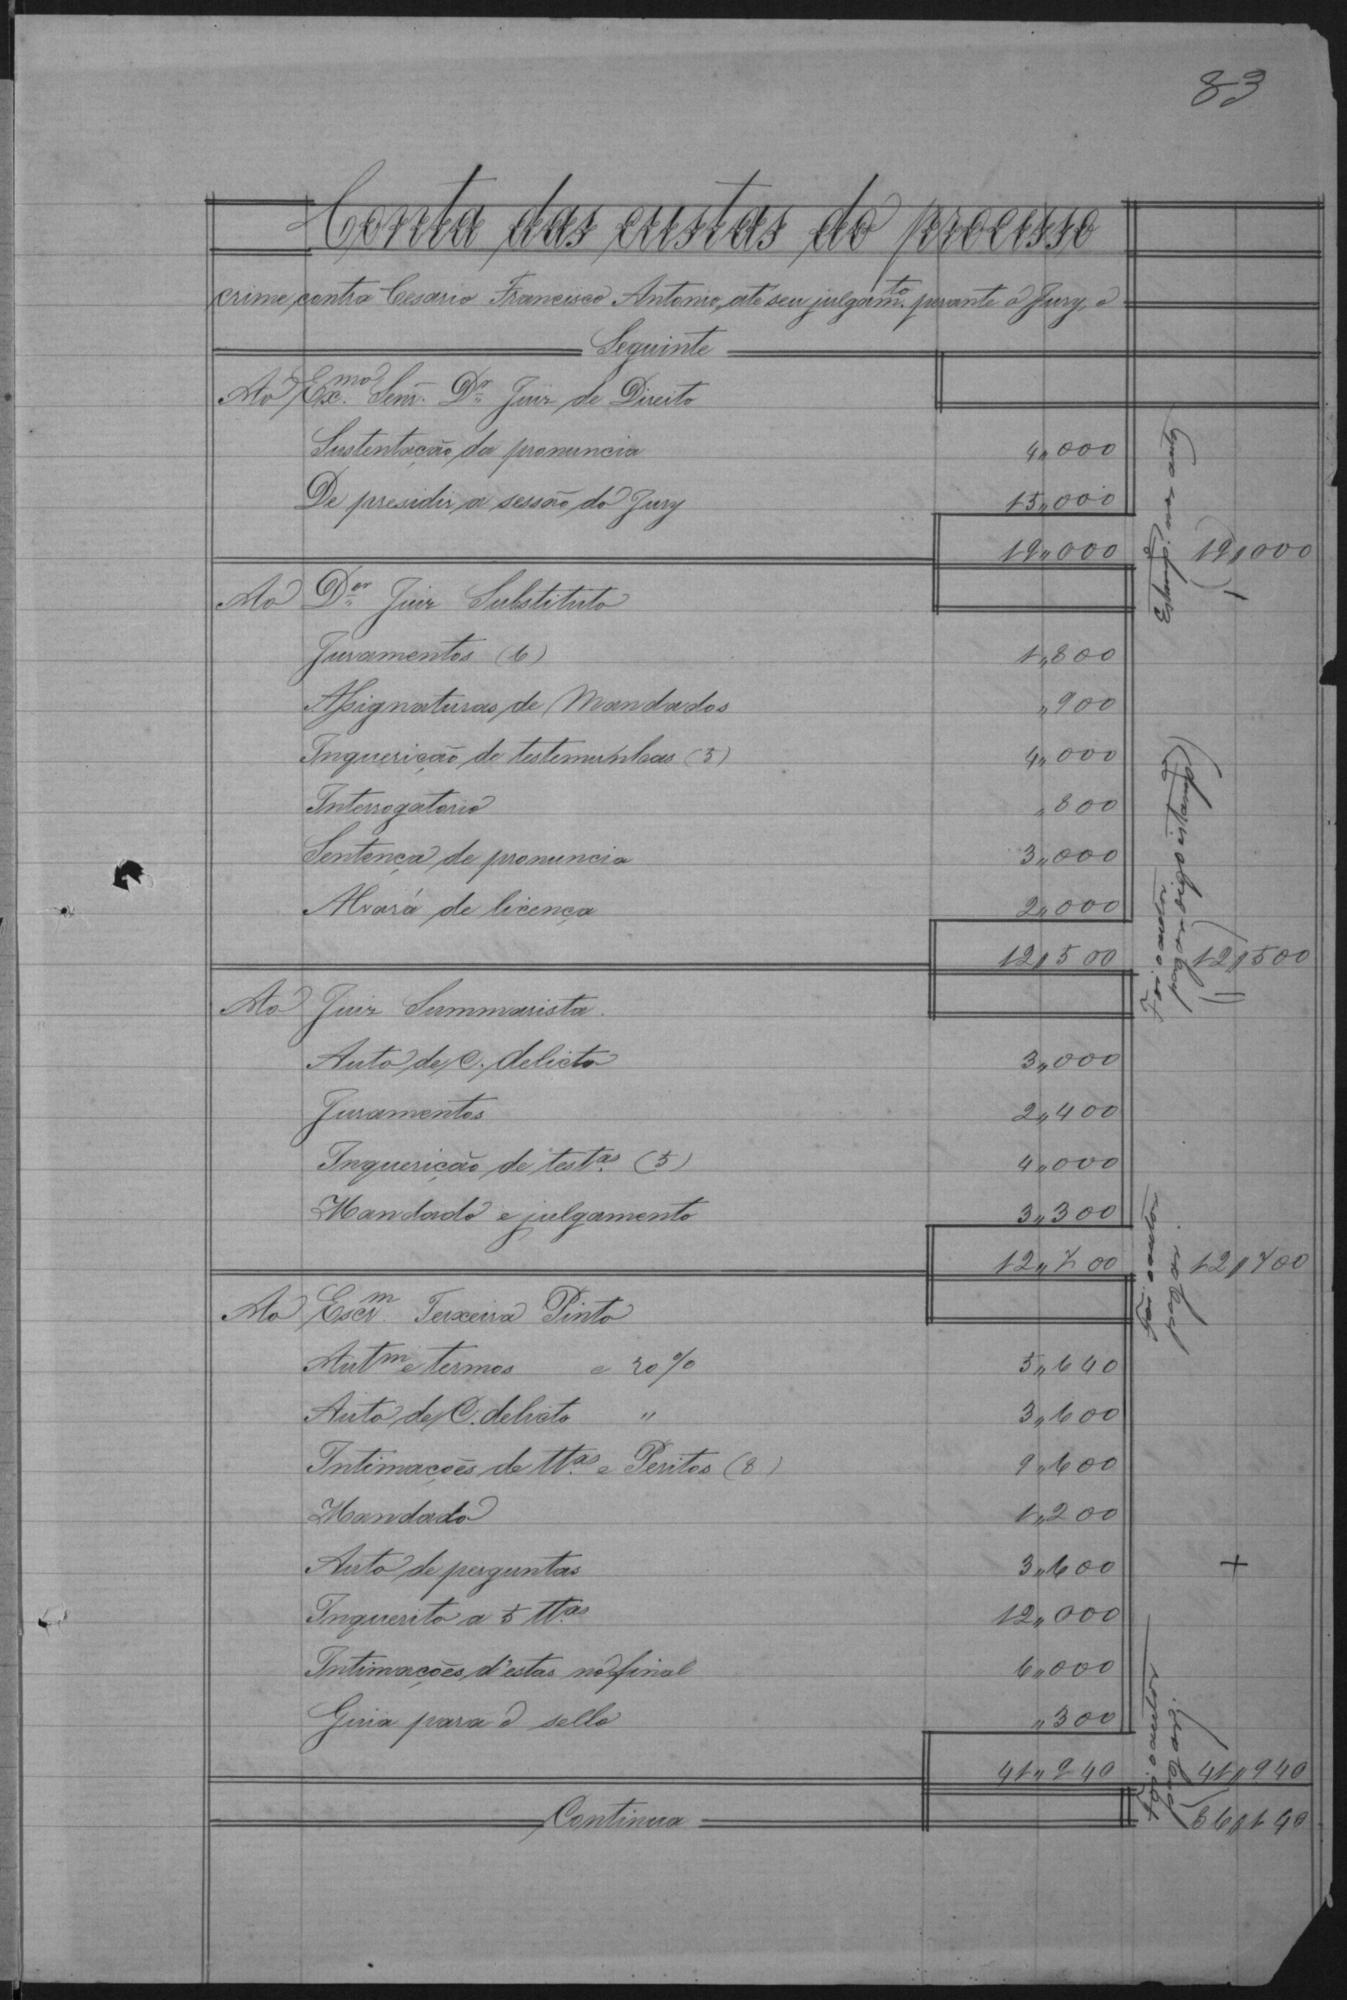 83
Conta das custas do processo
crime contra Cesario Francisco Antonio, até seu julgam.to perante o Jury, é
Seguinte
Ao Ex.mo Senr. Dr. Juiz de Direito
Sustentação da pronuncia 4,,000
De presidir a sessão do Jury 15,,000
19,,000 19,,000
Ao Dor. Juiz Substituto
Juramentos (6) 1,,800
Assignaturas de Mandados ,,900
Inquerição de testemunhas (5) 4,,000
Interrogatorio ,,800
Sentença de pronuncia 3,,000
Alvará de licença 2,,000
12,,500 12,,500
Foi o autor
pago digo estamp.
Ao Juiz Summarista.
Auto de C. delicto 3,,000
Juramentos 2,,400
Inquerição de test.as (5) 4,,000
Mandado e julgamento 3,,300
12,,700 12,,700
Foi o autor
pago.
Ao Escr.m Teixeira Pinto
Autm e termos e 20% 5,,640
Auto de C. delicto " 3,,600
Intimações de tt.as e Peritos (8) 9,,600
Mandado 1,,200
Auto de perguntas 3,,600 +
Inquerito a 5 tt.as 12,,000
Intimações d'estas no final 6,,000
Guia para o sello ,,300
41,,940 41,,940
Foi o autor
pago.
Continua 86,,140